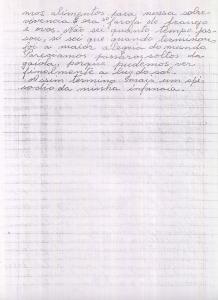 mos alimentos para nossa sobre-
vivencia e era "farofa de frango
e ovos. Não sei quanto tempo pas-
sou, só sei que quando terminou
foi a maior alegria do mundo
Pareciamos passaros soltos da
gaiola, porque pudemos ver
finalmente a luz do sol.
Assim termino mais um epi-
sodio da minha infancia.